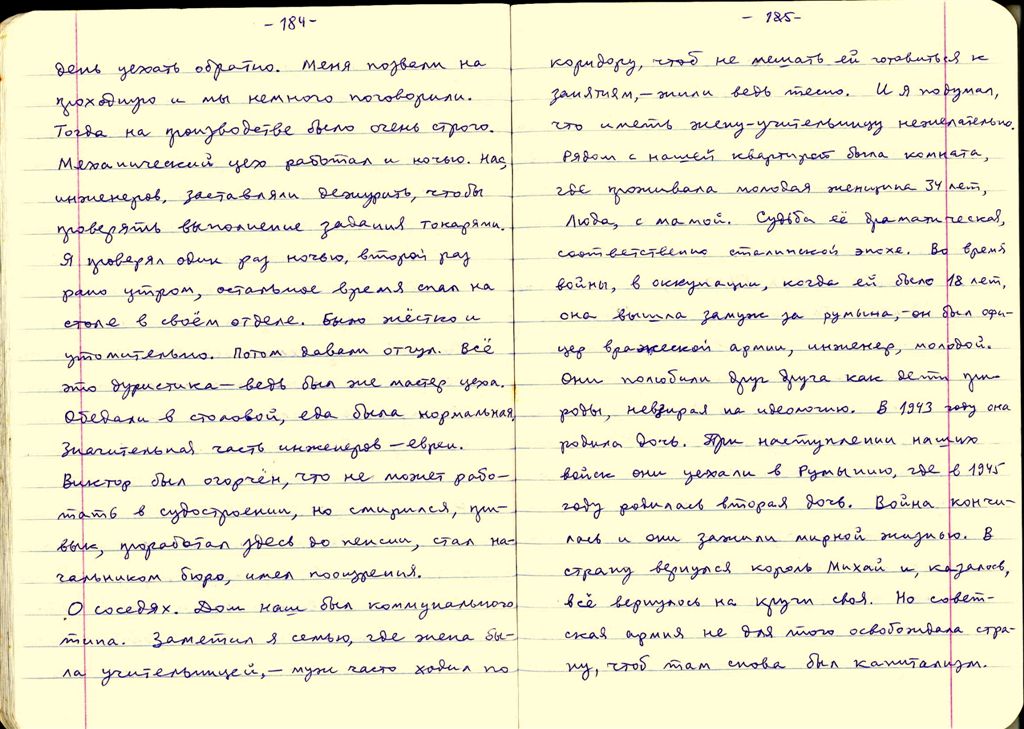 - 184 -
день уехать обратно. Меня позвали на
проходную и мы немного поговорили.
Тогда на производстве было очень строго.
Механический цех работал и ночью. Нас,
инженеров, заставляли дежурить, чтобы
проверять выполнение задания токарями.
Я проверял один раз ночью, второй раз
рано утром, остальное время спал на
столе в своём отделе. Было жёстко и
утомительно. Потом давали отгул. Всё
это дуристика – ведь был же мастер цеха.
Обедали в столовой, еда была нормальная.
Значительная часть инженеров – евреи.
Виктор был огорчён, что не может рабо-
тать в судостроении, но смирился, при-
вык, проработал здесь до пенсии, стал на-
чальником бюро, имел поощрения.
О соседях. Дом наш был коммунального
типа. Заметил я семью, где жена бы-
ла учительницей, – муж часто ходил по
- 185 -
коридору, чтоб не мешать ей готовиться к
занятиям, – жили ведь тесно. И я подумал,
что иметь жену-учительницу нежелательно.
Рядом с нашей квартирой была комната,
где проживала молодая женщина 34 лет,
Люда, с мамой. Судьба её драматическая,
соответственно сталинской эпохе. Во время
войны, в оккупации, когда ей было 18 лет,
она вышла замуж за румына, – он был офи-
цер вражеской армии, инженер, молодой.
Они полюбили друг друга как дети при-
роды, невзирая на идеологию. В 1943 году она
родила дочь. При наступлении наших
войск они уехали в Румынию, где в 1945
году родилась вторая дочь. Война кончи-
лась и они зажили мирной жизнью. В
страну вернулся король Михай и, казалось,
всё вернулось на круги своя. Но совет-
ская армия не для того освобождала стра-
ну, чтоб там снова был капитализм.